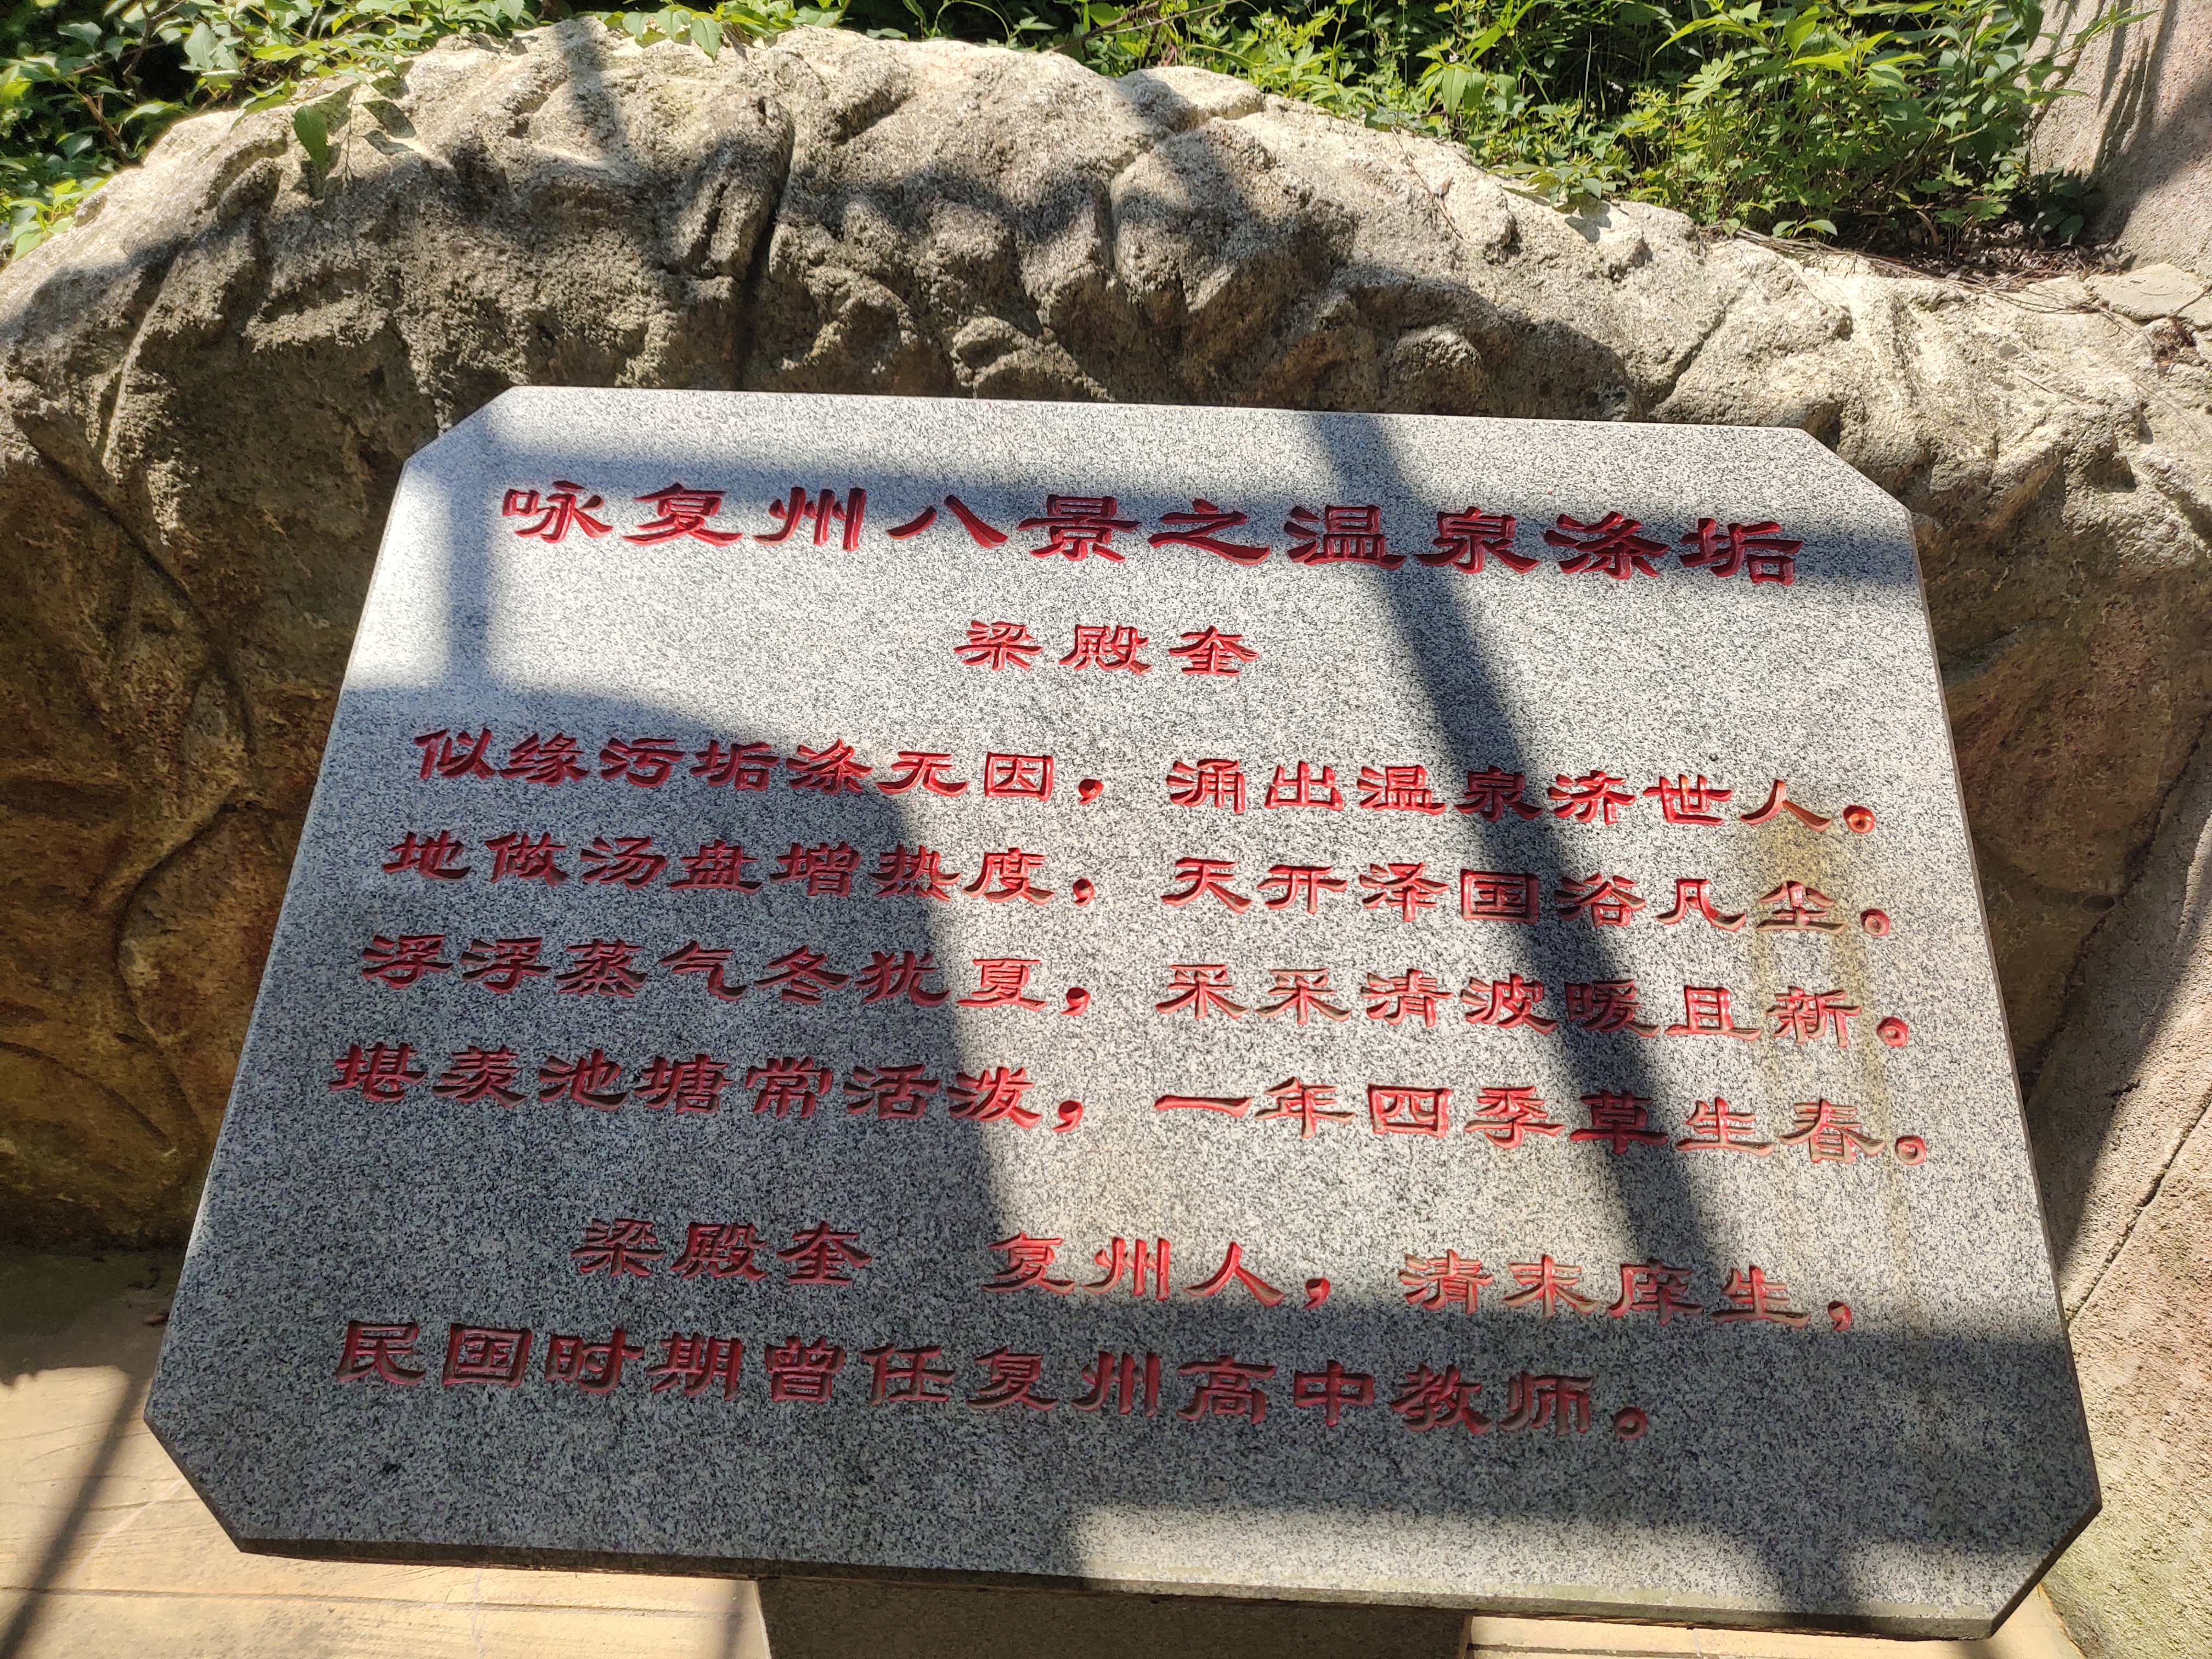 咏复州八景之温泉涤垢
梁殿奎
似缘污垢涤无因，涌出温泉济世人。
地做汤盘增热度，天开泽国浴凡尘。
浮浮蒸气冬犹夏，采采清波暖且新。
堪羡池塘常活泼，一年四季草生春。
梁殿奎 复州人，清末庠生，
民国时期曾任复州高中教师。